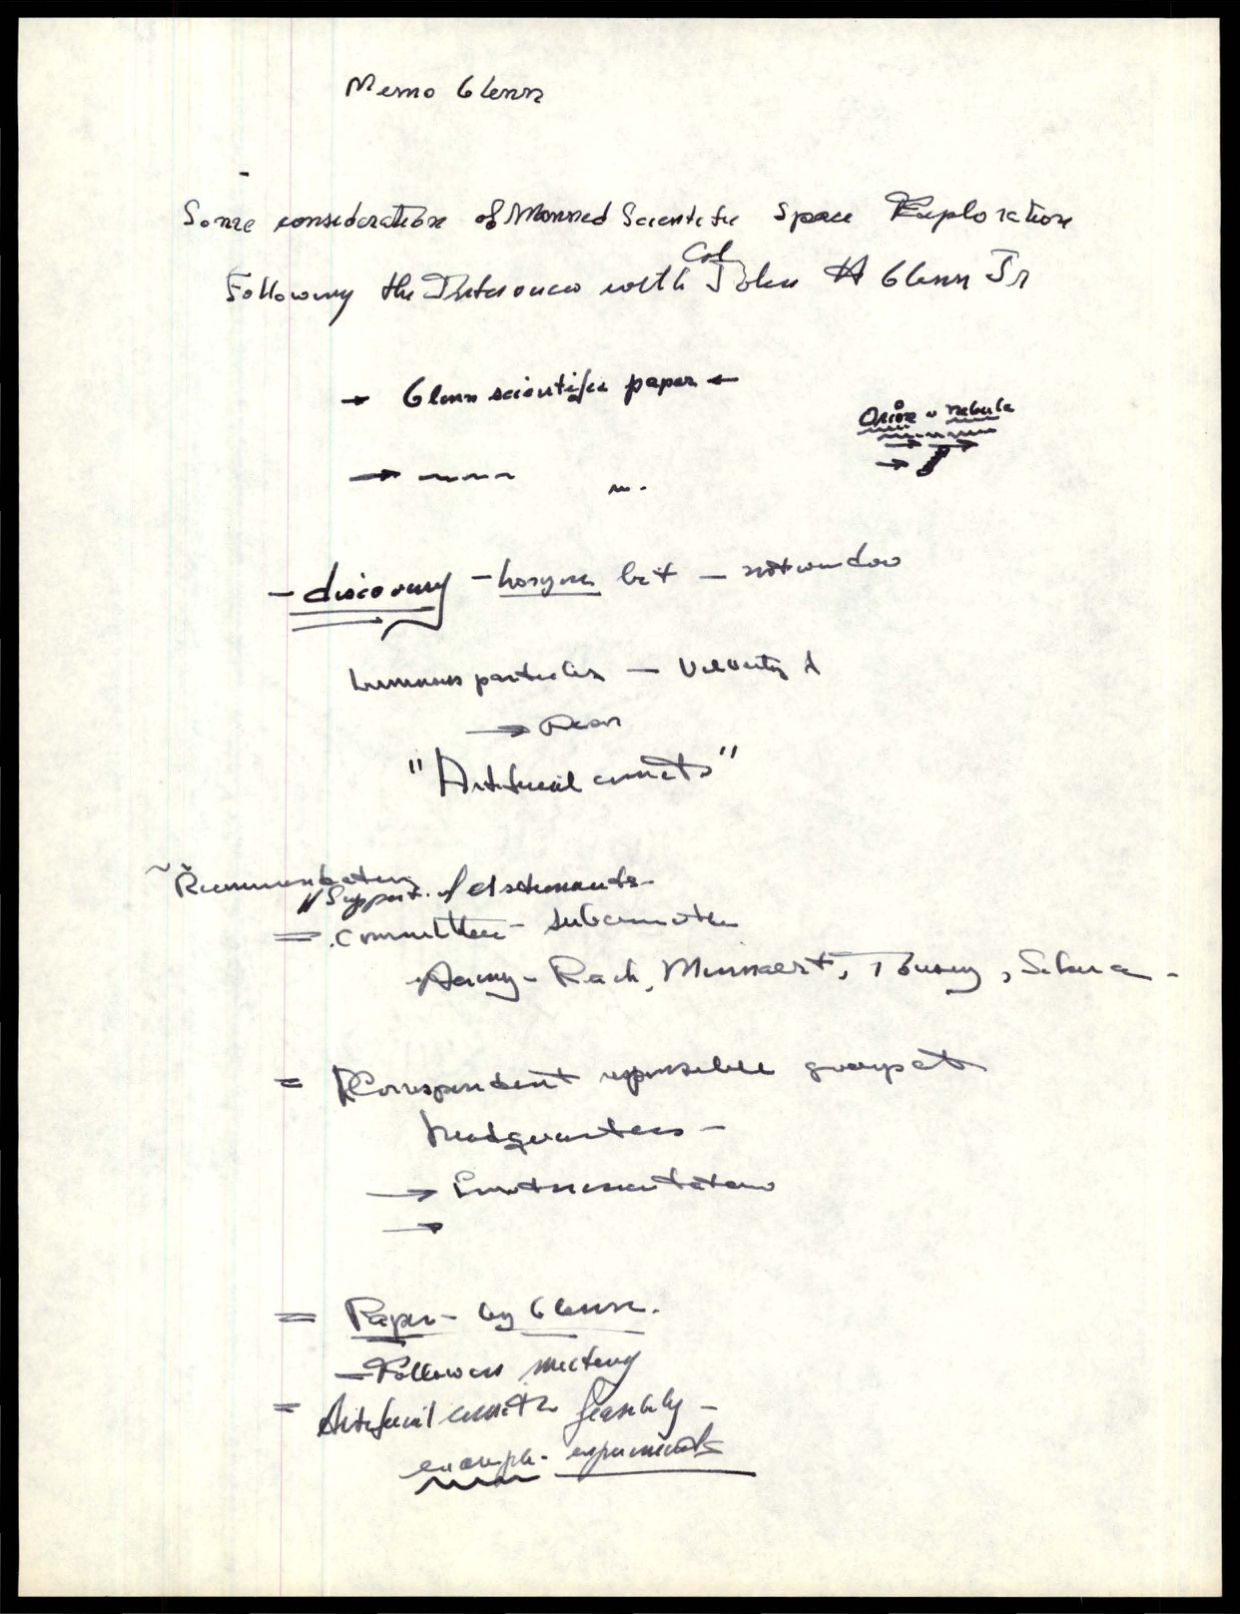 Memo Glenn
Some consideration of Manned Scientific Space Exploration
Following the Interview with Col John H Glenn Jr
→ Glenn scientific paper ←
Orion - nebula
- discovery - but - not window
Luminous particles - Velocity
→ Rear
"Artificial comets"
Recommendations
" Support of astronauts -
= Committee - subcommittee
Minnaert, Tousey,
= Correspondent responsible group at
headquarters -
→ Instrumentation
→
= Paper - by Glenn.
- Follow on meeting
= Artificial comet feasibily -
example - experiments